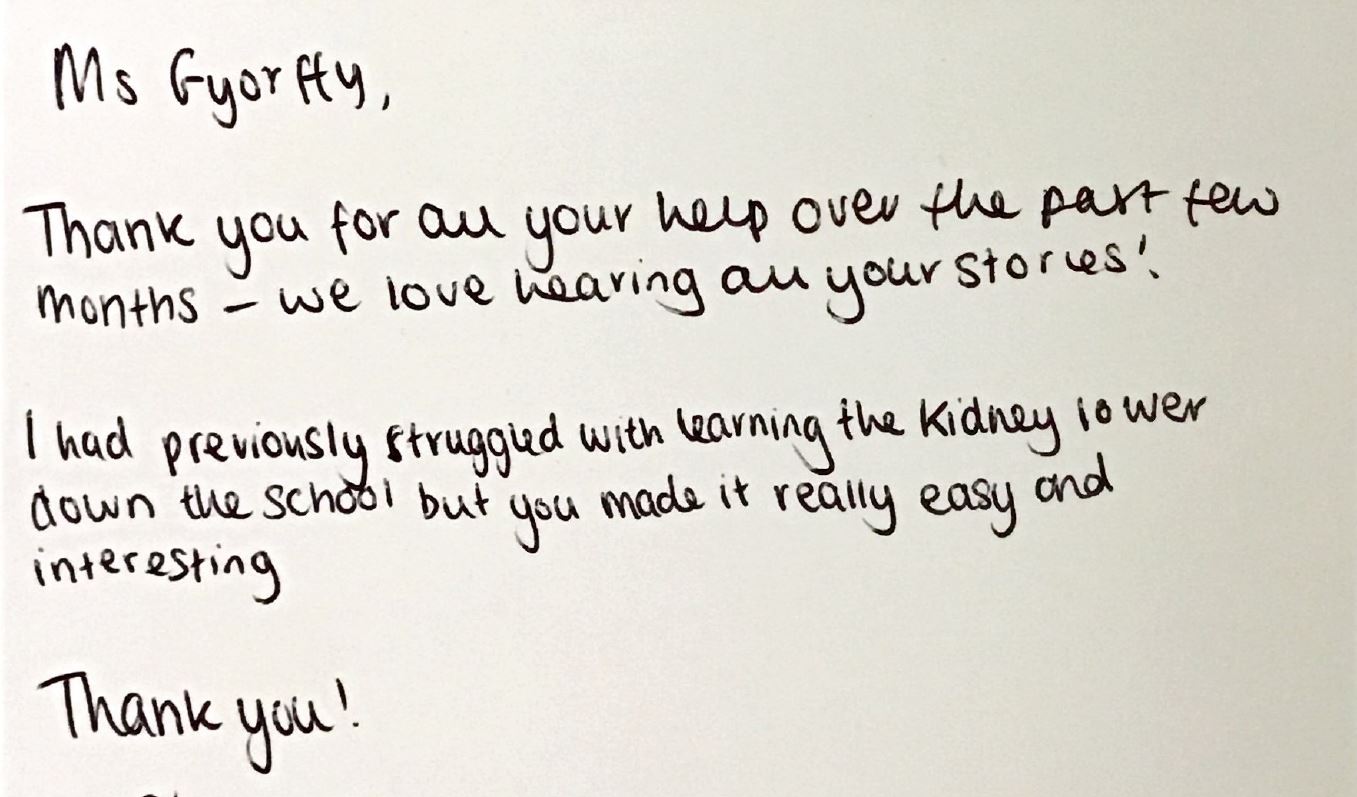 Ms Gyorffy,
Thank you for all your help over the past few
months – we love hearing all your stories!
I had previously struggled with learning the kidney lower
down the school but you made it really easy and
interesting
Thank you!